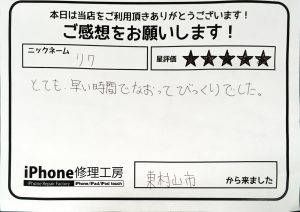 本日は当店をご利用頂きありがとうございます！
ご感想をお願いします！
ニックネーム
リワ
星評価 ★★★★★
とても早い時間でなおってびっくりでした。
iPhone修理工房
iPhone Repair Factory
iPhone/iPad/iPod touch
東村山市
から来ました